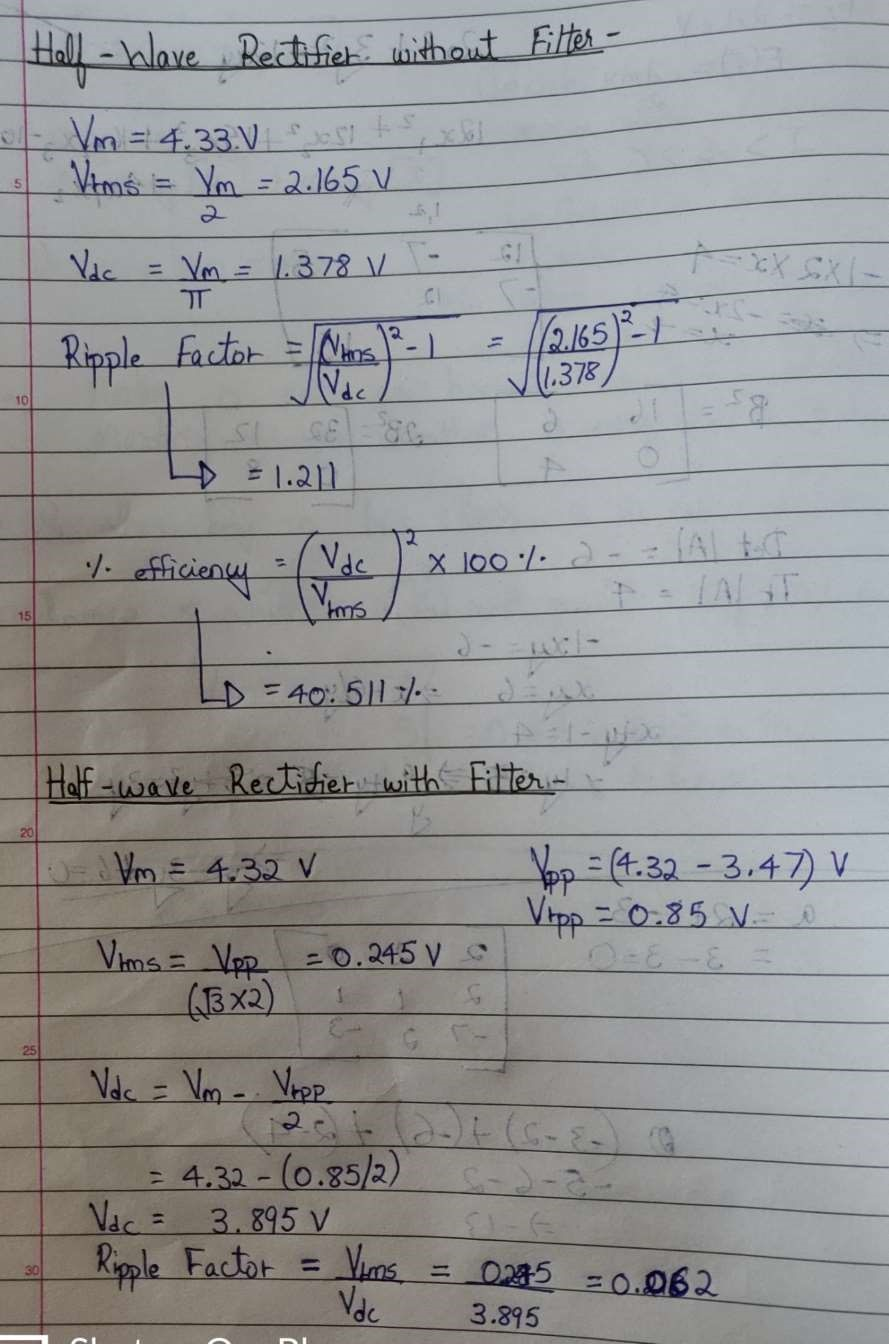 Half-Wave Rectifier without Filter-
Vm = 4.33 V
5
Vrms = Vm/2 = 2.165 V
Vdc = Vm/π = 1.378 V
Ripple Factor = √((Vrms/Vdc)² - 1) = √((2.165/1.378)² - 1)
10
= 1.211
% efficiency = (Vdc/Vrms)² × 100 %
15
= 40.511 %
Half-wave Rectifier with Filter-
20
Vm = 4.32 V Vpp = (4.32 - 3.47) V
Vrpp = 0.85 V
Vrms = Vpp/(√3×2) = 0.245 V
25
Vdc = Vm - Vrpp/2
= 4.32 - (0.85/2)
Vdc = 3.895 V
30
Ripple Factor = Vrms/Vdc = 0.245/3.895 = 0.062